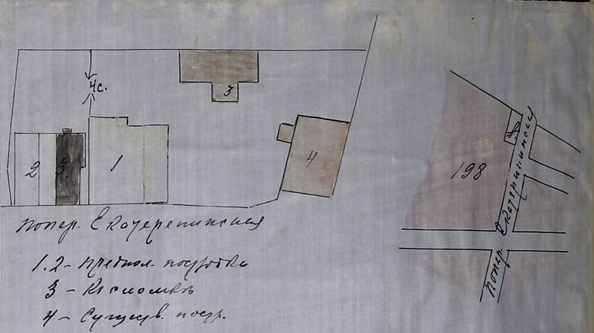 4с.
3
2
3
1
4
198
попер. Екатерининская
попер. Екатерининская
1.2 – предпол. постройка
3 – К сломке
4 – Существ. постр.